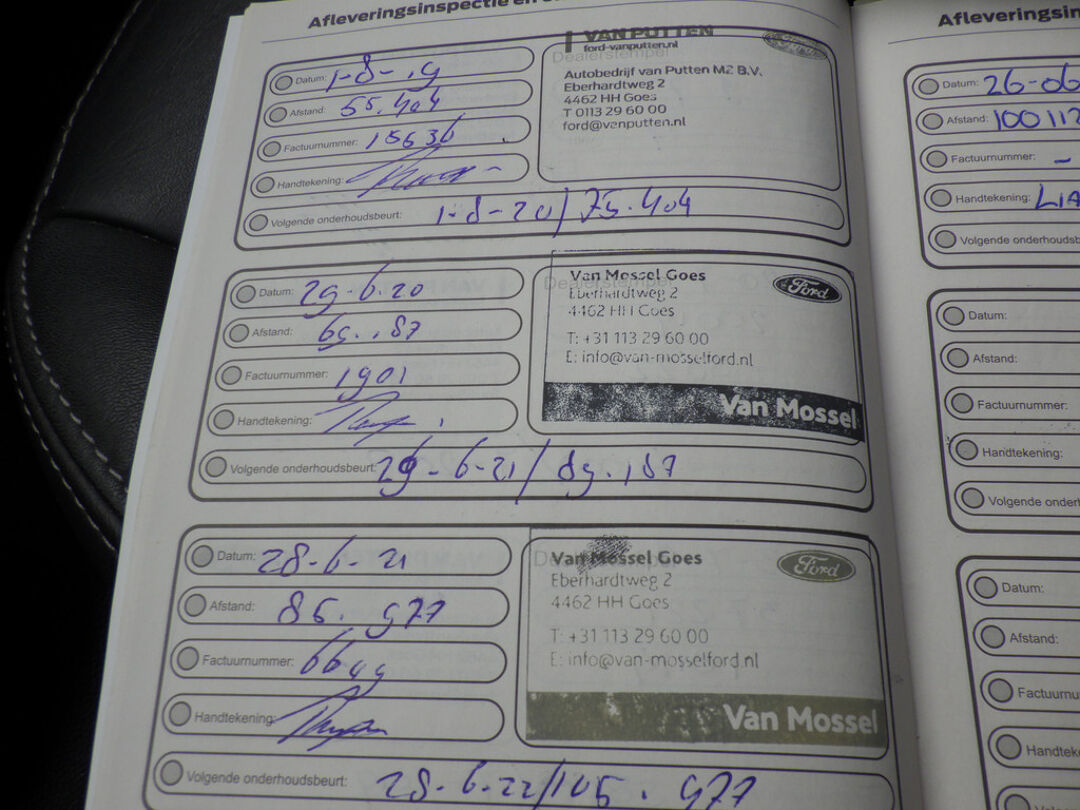 Afleveringsinspectie en
Datum: 1-8-19
Afstand: 55.404
Factuurnummer: 15636
Handtekening:
Volgende onderhoudsbeurt: 1-8-20/75.404
VAN PUTTEN
ford-vanputten.nl
Dealerstempel
Autobedrijf van Putten M2 B.V.
Eberhardtweg 2
4462 HH Goes
T 0113 29 60 00
ford@vanputten.nl
Datum: 29-6-20
Afstand: 69.187
Factuurnummer: 1901
Handtekening:
Volgende onderhoudsbeurt: 29-6-21/89.187
Van Mossel Goes
Eberhardtweg 2
4462 HH Goes
T: +31 113 29 60 00
E: info@van-mosselford.nl
Ford
Van Mossel
Datum: 28-6-21
Afstand: 85.977
Factuurnummer: 6699
Handtekening:
Volgende onderhoudsbeurt: 28-6-22/105.977
Van Mossel Goes
Eberhardtweg 2
4462 HH Goes
T: +31 113 29 60 00
E: info@van-mosselford.nl
Ford
Van Mossel
Datum: 26-06
Afstand: 100112
Factuurnummer: -
Handtekening: LIA
Volgende
Datum:
Afstand:
Factuurnummer:
Handtekening:
Volgende
Datum:
Afstand: